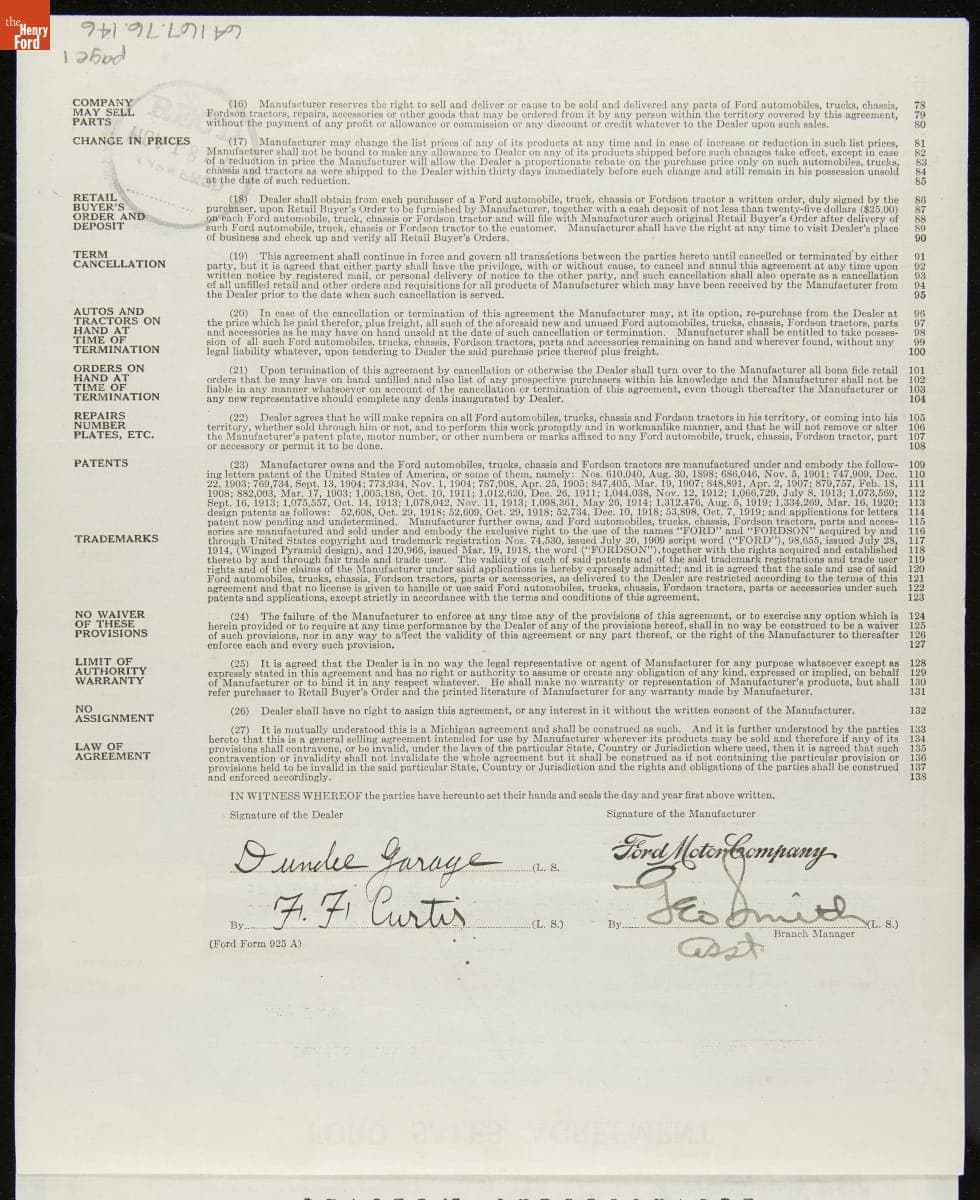 the
Henry
Ford
64.167.76.146
page 1
COMPANY MAY SELL PARTS
(16) Manufacturer reserves the right to sell and deliver or cause to be sold and delivered any parts of Ford automobiles, trucks, chassis, 78
Fordson tractors, repairs, accessories or other goods that may be ordered from it by any person within the territory covered by this agreement, 79
without the payment of any profit or allowance or commission or any discount or credit whatever to the Dealer upon such sales. 80
CHANGE IN PRICES
(17) Manufacturer may change the list prices of any of its products at any time and in case of increase or reduction in such list prices, 81
Manufacturer shall not be bound to make any allowance to Dealer on any of its products shipped before such changes take effect, except in case 82
of a reduction in price the Manufacturer will allow the Dealer a proportionate rebate on the purchase price only on such automobiles, trucks, 83
chassis and tractors as were shipped to the Dealer within thirty days immediately before such change and still remain in his possession unsold 84
at the date of such reduction. 85
RETAIL BUYER'S ORDER AND DEPOSIT
(18) Dealer shall obtain from each purchaser of a Ford automobile, truck, chassis or Fordson tractor a written order, duly signed by the 86
purchaser, upon Retail Buyer's Order to be furnished by Manufacturer, together with a cash deposit of not less than twenty-five dollars ($25.00) 87
on each Ford automobile, truck, chassis or Fordson tractor and will file with Manufacturer such original Retail Buyer's Order after delivery of 88
such Ford automobile, truck, chassis or Fordson tractor to the customer. Manufacturer shall have the right at any time to visit Dealer's place 89
of business and check up and verify all Retail Buyer's Orders. 90
TERM CANCELLATION
(19) This agreement shall continue in force and govern all transactions between the parties hereto until cancelled or terminated by either 91
party, but it is agreed that either party shall have the privilege, with or without cause, to cancel and annul this agreement at any time upon 92
written notice by registered mail, or personal delivery of notice to the other party, and such cancellation shall also operate as a cancellation 93
of all unfilled retail and other orders and requisitions for all products of Manufacturer which may have been received by the Manufacturer from 94
the Dealer prior to the date when such cancellation is served. 95
AUTOS AND TRACTORS ON HAND AT TIME OF TERMINATION
(20) In case of the cancellation or termination of this agreement the Manufacturer may, at its option, re-purchase from the Dealer at 96
the price which he paid therefor, plus freight, all such of the aforesaid new and unused Ford automobiles, trucks, chassis, Fordson tractors, parts 97
and accessories as he may have on hand unsold at the date of such cancellation or termination. Manufacturer shall be entitled to take posses- 98
sion of all such Ford automobiles, trucks, chassis, Fordson tractors, parts and accessories remaining on hand and wherever found, without any 99
legal liability whatever, upon tendering to Dealer the said purchase price thereof plus freight. 100
ORDERS ON HAND AT TIME OF TERMINATION
(21) Upon termination of this agreement by cancellation or otherwise the Dealer shall turn over to the Manufacturer all bona fide retail 101
orders that he may have on hand unfilled and also list of any prospective purchasers within his knowledge and the Manufacturer shall not be 102
liable in any manner whatsoever on account of the cancellation or termination of this agreement, even though thereafter the Manufacturer or 103
any new representative should complete any deals inaugurated by Dealer. 104
REPAIRS NUMBER PLATES, ETC.
(22) Dealer agrees that he will make repairs on all Ford automobiles, trucks, chassis and Fordson tractors in his territory, or coming into his 105
territory, whether sold through him or not, and to perform this work promptly and in workmanlike manner, and that he will not remove or alter 106
the Manufacturer's patent plate, motor number, or other numbers or marks affixed to any Ford automobile, truck, chassis, Fordson tractor, part 107
or accessory or permit it to be done. 108
PATENTS
(23) Manufacturer owns and the Ford automobiles, trucks, chassis and Fordson tractors are manufactured under and embody the follow- 109
ing letters patent of the United States of America, or some of them, namely: Nos. 610,040, Aug. 30, 1898; 686,046, Nov. 5, 1901; 747,909, Dec. 110
22, 1903; 769,734, Sept. 13, 1904; 773,934, Nov. 1, 1904; 787,908, Apr. 25, 1905; 847,405, Mar. 19, 1907; 848,891, Apr. 2, 1907; 879,757, Feb. 18, 111
1908; 882,003, Mar. 17, 1903; 1,005,186, Oct. 10, 1911; 1,012,620, Dec. 26, 1911; 1,044,038, Nov. 12, 1912; 1,066,729, July 8, 1913; 1,073,569, 112
Sept. 16, 1913; 1,075,557, Oct. 14, 1913; 1,078,042, Nov. 11, 1913; 1,098,361, May 26, 1914; 1,312,476, Aug. 5, 1919; 1,334,269, Mar. 16, 1920; 113
design patents as follows: 52,608, Oct. 29, 1918; 52,609, Oct. 29, 1918; 52,734, Dec. 10, 1918; 53,898, Oct. 7, 1919; and applications for letters 114
patent now pending and undetermined. Manufacturer further owns, and Ford automobiles, trucks, chassis, Fordson tractors, parts and acces- 115
sories are manufactured and sold under and embody the exclusive right to the use of the names "FORD" and "FORDSON" acquired by and 116
TRADEMARKS
through United States copyright and trademark registration Nos. 74,530, issued July 20, 1909 script word ("FORD"), 98,655, issued July 28, 117
1914, (Winged Pyramid design), and 120,966, issued Mar. 19, 1918, the word ("FORDSON"), together with the rights acquired and established 118
thereto by and through fair trade and trade user. The validity of each of said patents and of the said trademark registrations and trade user 119
rights and of the claims of the Manufacturer under said applications is hereby expressly admitted; and it is agreed that the sale and use of said 120
Ford automobiles, trucks, chassis, Fordson tractors, parts or accessories, as delivered to the Dealer are restricted according to the terms of this 121
agreement and that no license is given to handle or use said Ford automobiles, trucks, chassis, Fordson tractors, parts or accessories under such 122
patents and applications, except strictly in accordance with the terms and conditions of this agreement. 123
NO WAIVER OF THESE PROVISIONS
(24) The failure of the Manufacturer to enforce at any time any of the provisions of this agreement, or to exercise any option which is 124
herein provided or to require at any time performance by the Dealer of any of the provisions hereof, shall in no way be construed to be a waiver 125
of such provisions, nor in any way to affect the validity of this agreement or any part thereof, or the right of the Manufacturer to thereafter 126
enforce each and every such provision. 127
LIMIT OF AUTHORITY WARRANTY
(25) It is agreed that the Dealer is in no way the legal representative or agent of Manufacturer for any purpose whatsoever except as 128
expressly stated in this agreement and has no right or authority to assume or create any obligation of any kind, expressed or implied, on behalf 129
of Manufacturer or to bind it in any respect whatever. He shall make no warranty or representation of Manufacturer's products, but shall 130
refer purchaser to Retail Buyer's Order and the printed literature of Manufacturer for any warranty made by Manufacturer. 131
NO ASSIGNMENT
(26) Dealer shall have no right to assign this agreement, or any interest in it without the written consent of the Manufacturer. 132
LAW OF AGREEMENT
(27) It is mutually understood this is a Michigan agreement and shall be construed as such. And it is further understood by the parties 133
hereto that this is a general selling agreement intended for use by Manufacturer wherever its products may be sold and therefore if any of its 134
provisions shall contravene, or be invalid, under the laws of the particular State, Country or Jurisdiction where used, then it is agreed that such 135
contravention or invalidity shall not invalidate the whole agreement but it shall be construed as if not containing the particular provision or 136
provisions held to be invalid in the said particular State, Country or Jurisdiction and the rights and obligations of the parties shall be construed 137
and enforced accordingly. 138
IN WITNESS WHEREOF the parties have hereunto set their hands and seals the day and year first above written.
Signature of the Dealer
Signature of the Manufacturer
Dundee Garage (L. S.
Ford Motor Company
By F. F. Curtis (L. S.)
By Geo Smith (L. S.)
Branch Manager
asst
(Ford Form 925 A)